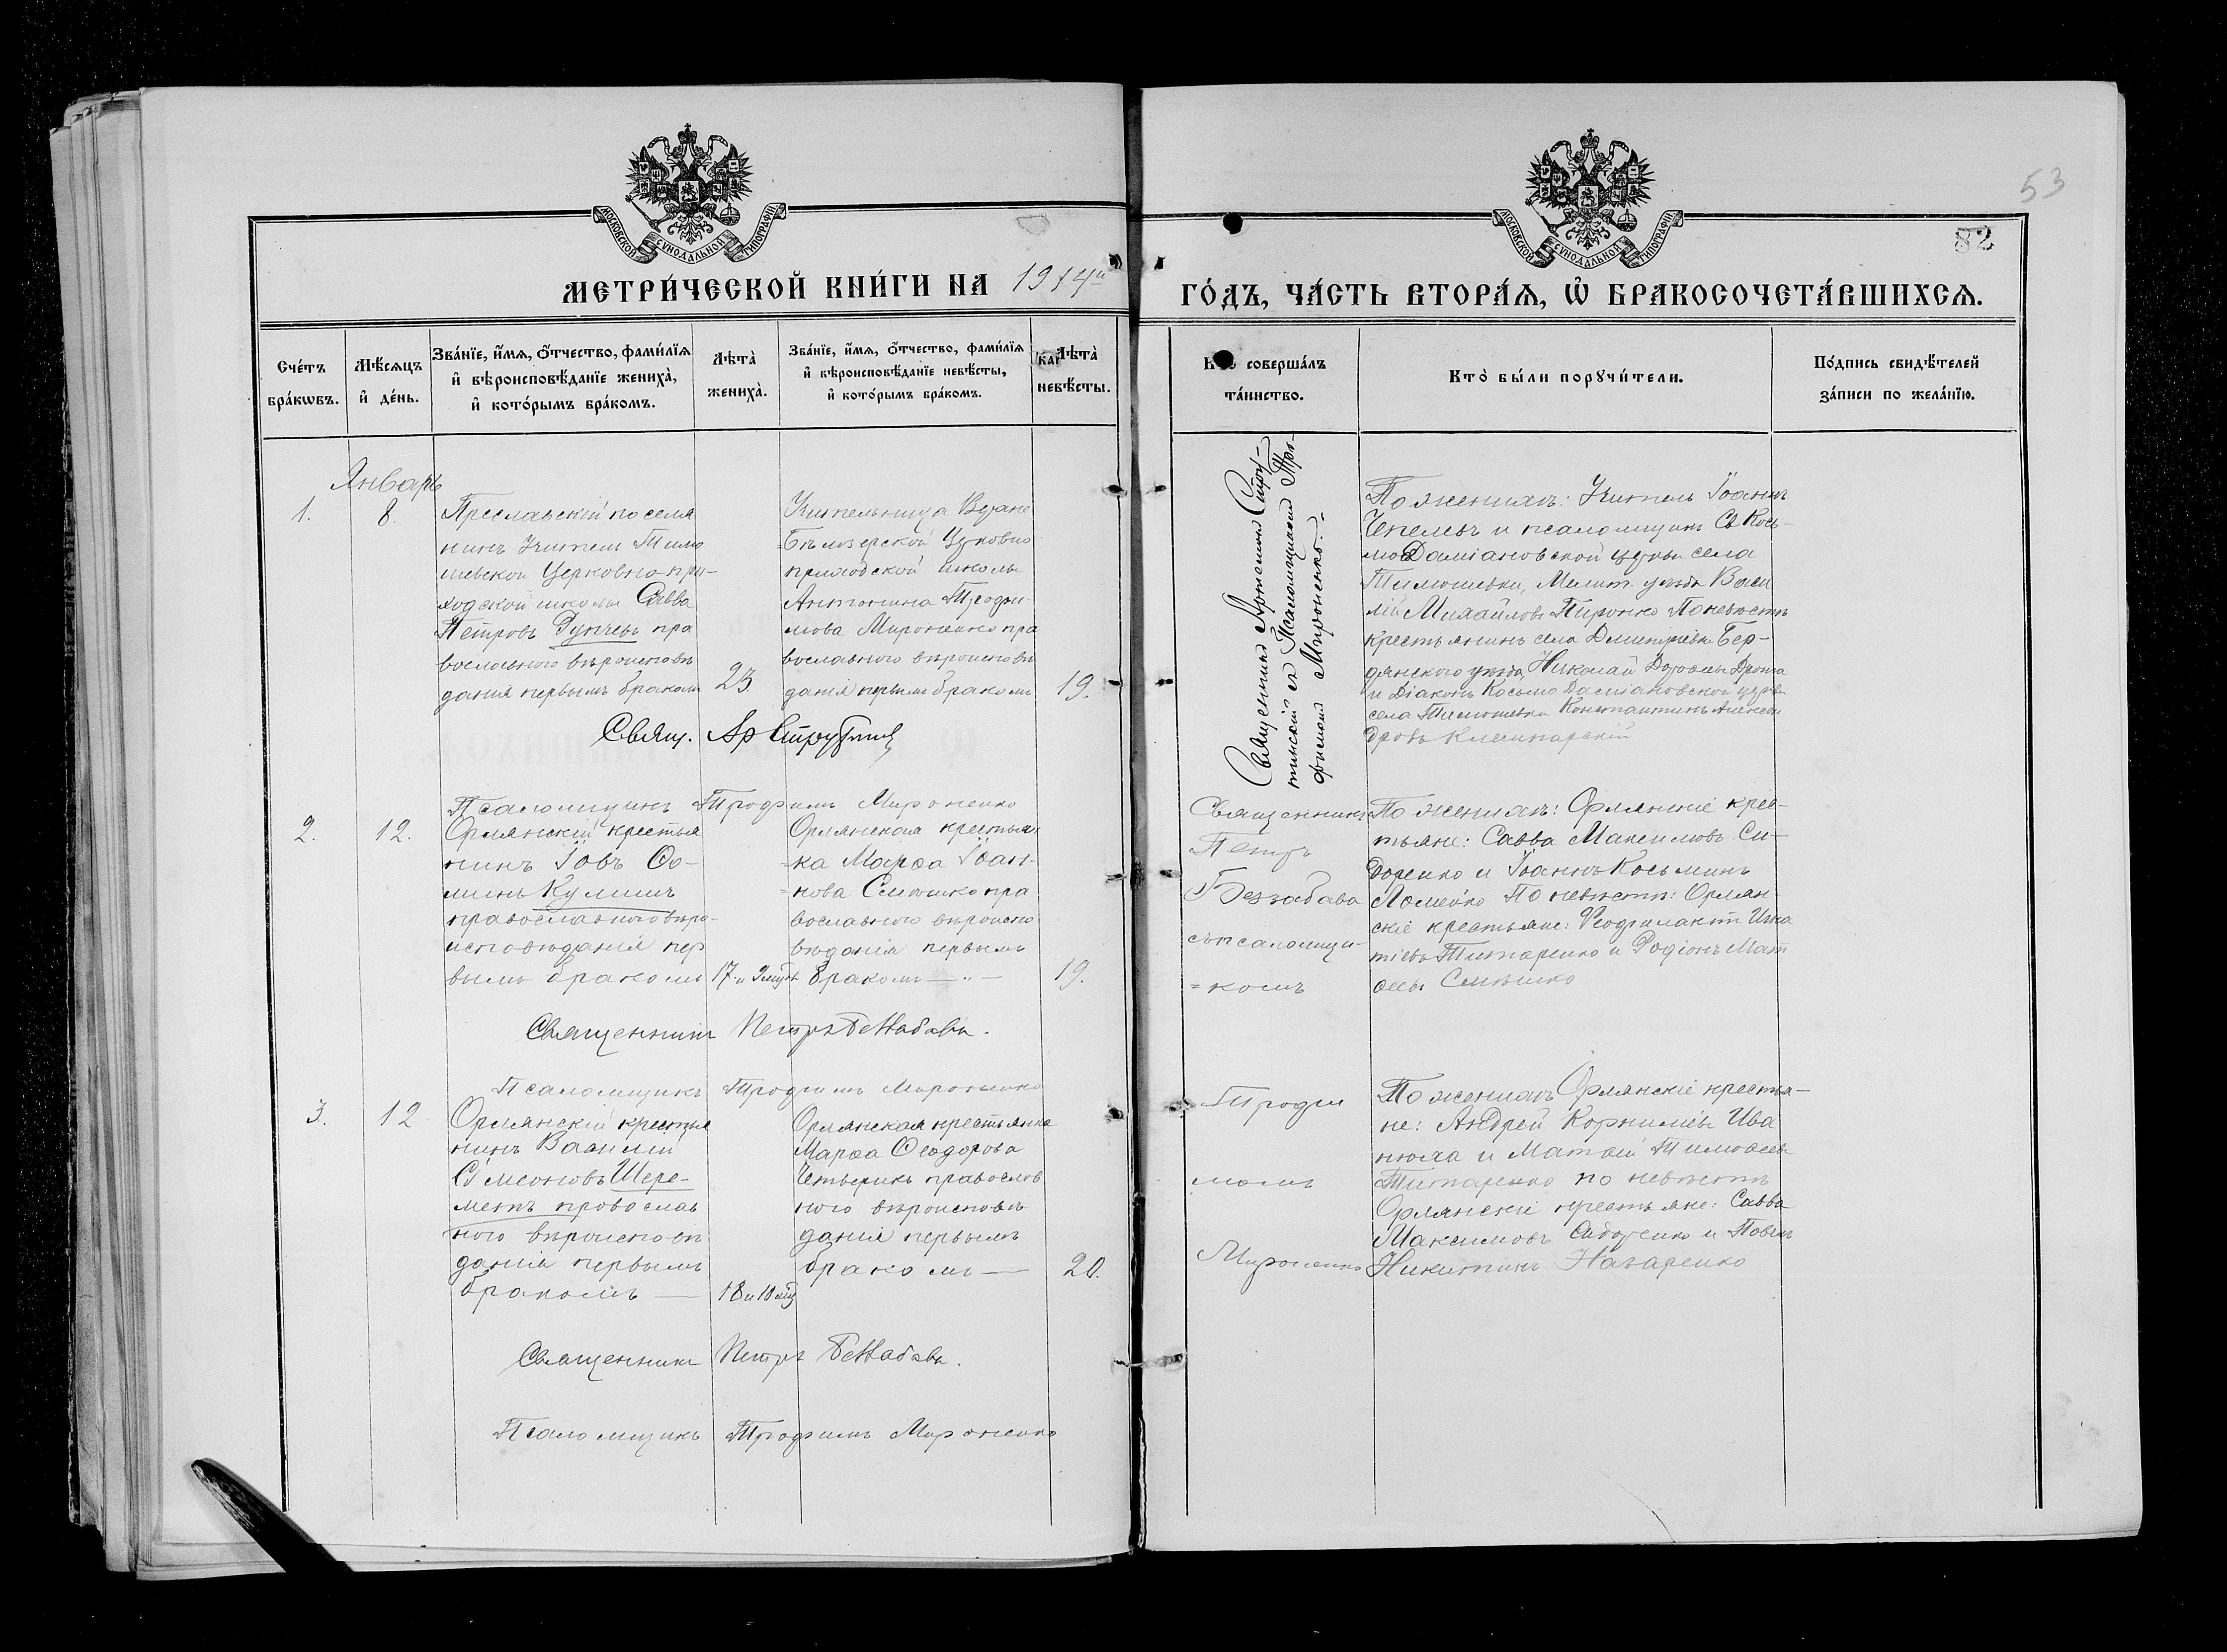 53
82
МОСКОВСКОЙ СѴНОДАЛЬНОЙ ТИПОГРАФІИ
МОСКОВСКОЙ СѴНОДАЛЬНОЙ ТИПОГРАФІИ
МЕТРИ́ЧЕСКОЙ КНИ́ГИ НА 1914й
ГО́ДЪ, ЧА́СТЬ ВТОРА́Ѧ, Ѽ БРАКОСОЧЕТА́ВШИХСѦ.
Сче́тъ бра́кѡвъ.
Мѣ́сяцъ и҆ де́нь.
Зва́нїе, и҆́мѧ, ѻ҆́тчество, фами́лїѧ
и҆ вѣроисповѣ́данїе жениха̀,
и҆ кото́рымъ бра́комъ.
Лѣта̀ жениха̀.
Зва́нїе, и҆́мѧ, ѻ҆́тчество, фами́лїѧ
и҆ вѣроисповѣ́данїе невѣ́сты,
и҆ кото́рымъ бра́комъ.
Лѣта̀ невѣ́сты.
соверша́лъ та́инство.
Кто̀ бы́ли порꙋчи́тели.
По́дпись свидѣ́телей
за́писи по жела́нїю.
Январь
1.
8.
Преславскій поселя
нинъ Учитель Тимо
шевской Церковно-при-
ходской школы Савва
Петровъ Гунчевъ пра
вославнаго вѣроисповѣ
данія первымъ бракомъ
23
Учительница
Бѣлозерской Церковно
приходской школы
Антонина Трофи-
мова Мироненко пра
вославного вѣроисповѣ
данія первымъ бракомъ
19.
Священникъ Артемій
Псаломщикомъ Тро-
фимомъ Мироненко.
По женихѣ: Учитель Іоаннъ
Чепелевъ и псаломщикъ Св Кось-
мо Даміановской церкви села
Тимошевки, Мелит. уѣзда Васи
лій Михайловъ По невѣстѣ
крестьянинъ села Дмитріевки Бер-
дянского уѣзда, Николай
и Діаконъ Косьмо Даміановской церкви
села Тимошевки Константинъ Алексан
дровъ
Свящ. Ар
Псаломщикъ Трофимъ Мироненко
2.
12.
Орлянскій крестья
нинъ Іовъ Ѳо-
минъ Кулишъ
православного вѣро-
исповѣданія пер
вымъ бракомъ
17 и 9 мцвъ
Орлянская крестьян
=ка Марѳа Іоан-
=нова пра
вославного вѣроиспо
вѣданія первымъ
бракомъ — „ —
19.
Священникъ
Петръ
Беззабава
съ псаломщи-
=комъ
По женихѣ: Орлянскіе крес-
тьяне: Савва Максимовъ Си-
доренко и Іоаннъ Косьминъ
По невѣстѣ: Орлян-
скіе крестьяне: Ѳеофилактъ Игна
тіевъ Титаренко и Родіонъ Матѳ
Священникъ Петръ Беззабава.
Псаломщикъ Трофимъ Мироненко
3.
12
Орлянскій крестья
нинъ Василій
Сѵмеоновъ Шере-
метъ православ
ного вѣроисповѣ
данія первымъ
бракомъ —
18 и 10 мц
Орлянская крестьянка
Марѳа Ѳеодорова
Четверикъ православ
ного вѣроисповѣ
данія первымъ
бракомъ —
20.
Трофи
момъ
Мироненко
По женихѣ Орлянскіе крестья-
не: Андрей Корниліевъ Ива
нюха и Матѳій Тимоѳеевъ
Титаренко по невѣстѣ
Орлянскіе крестьяне: Савва
Максимовъ Сидоренко и Павелъ
Никитинъ Назаренко
Священникъ Петръ Беззабава.
Псаломщикъ Трофимъ Мироненко